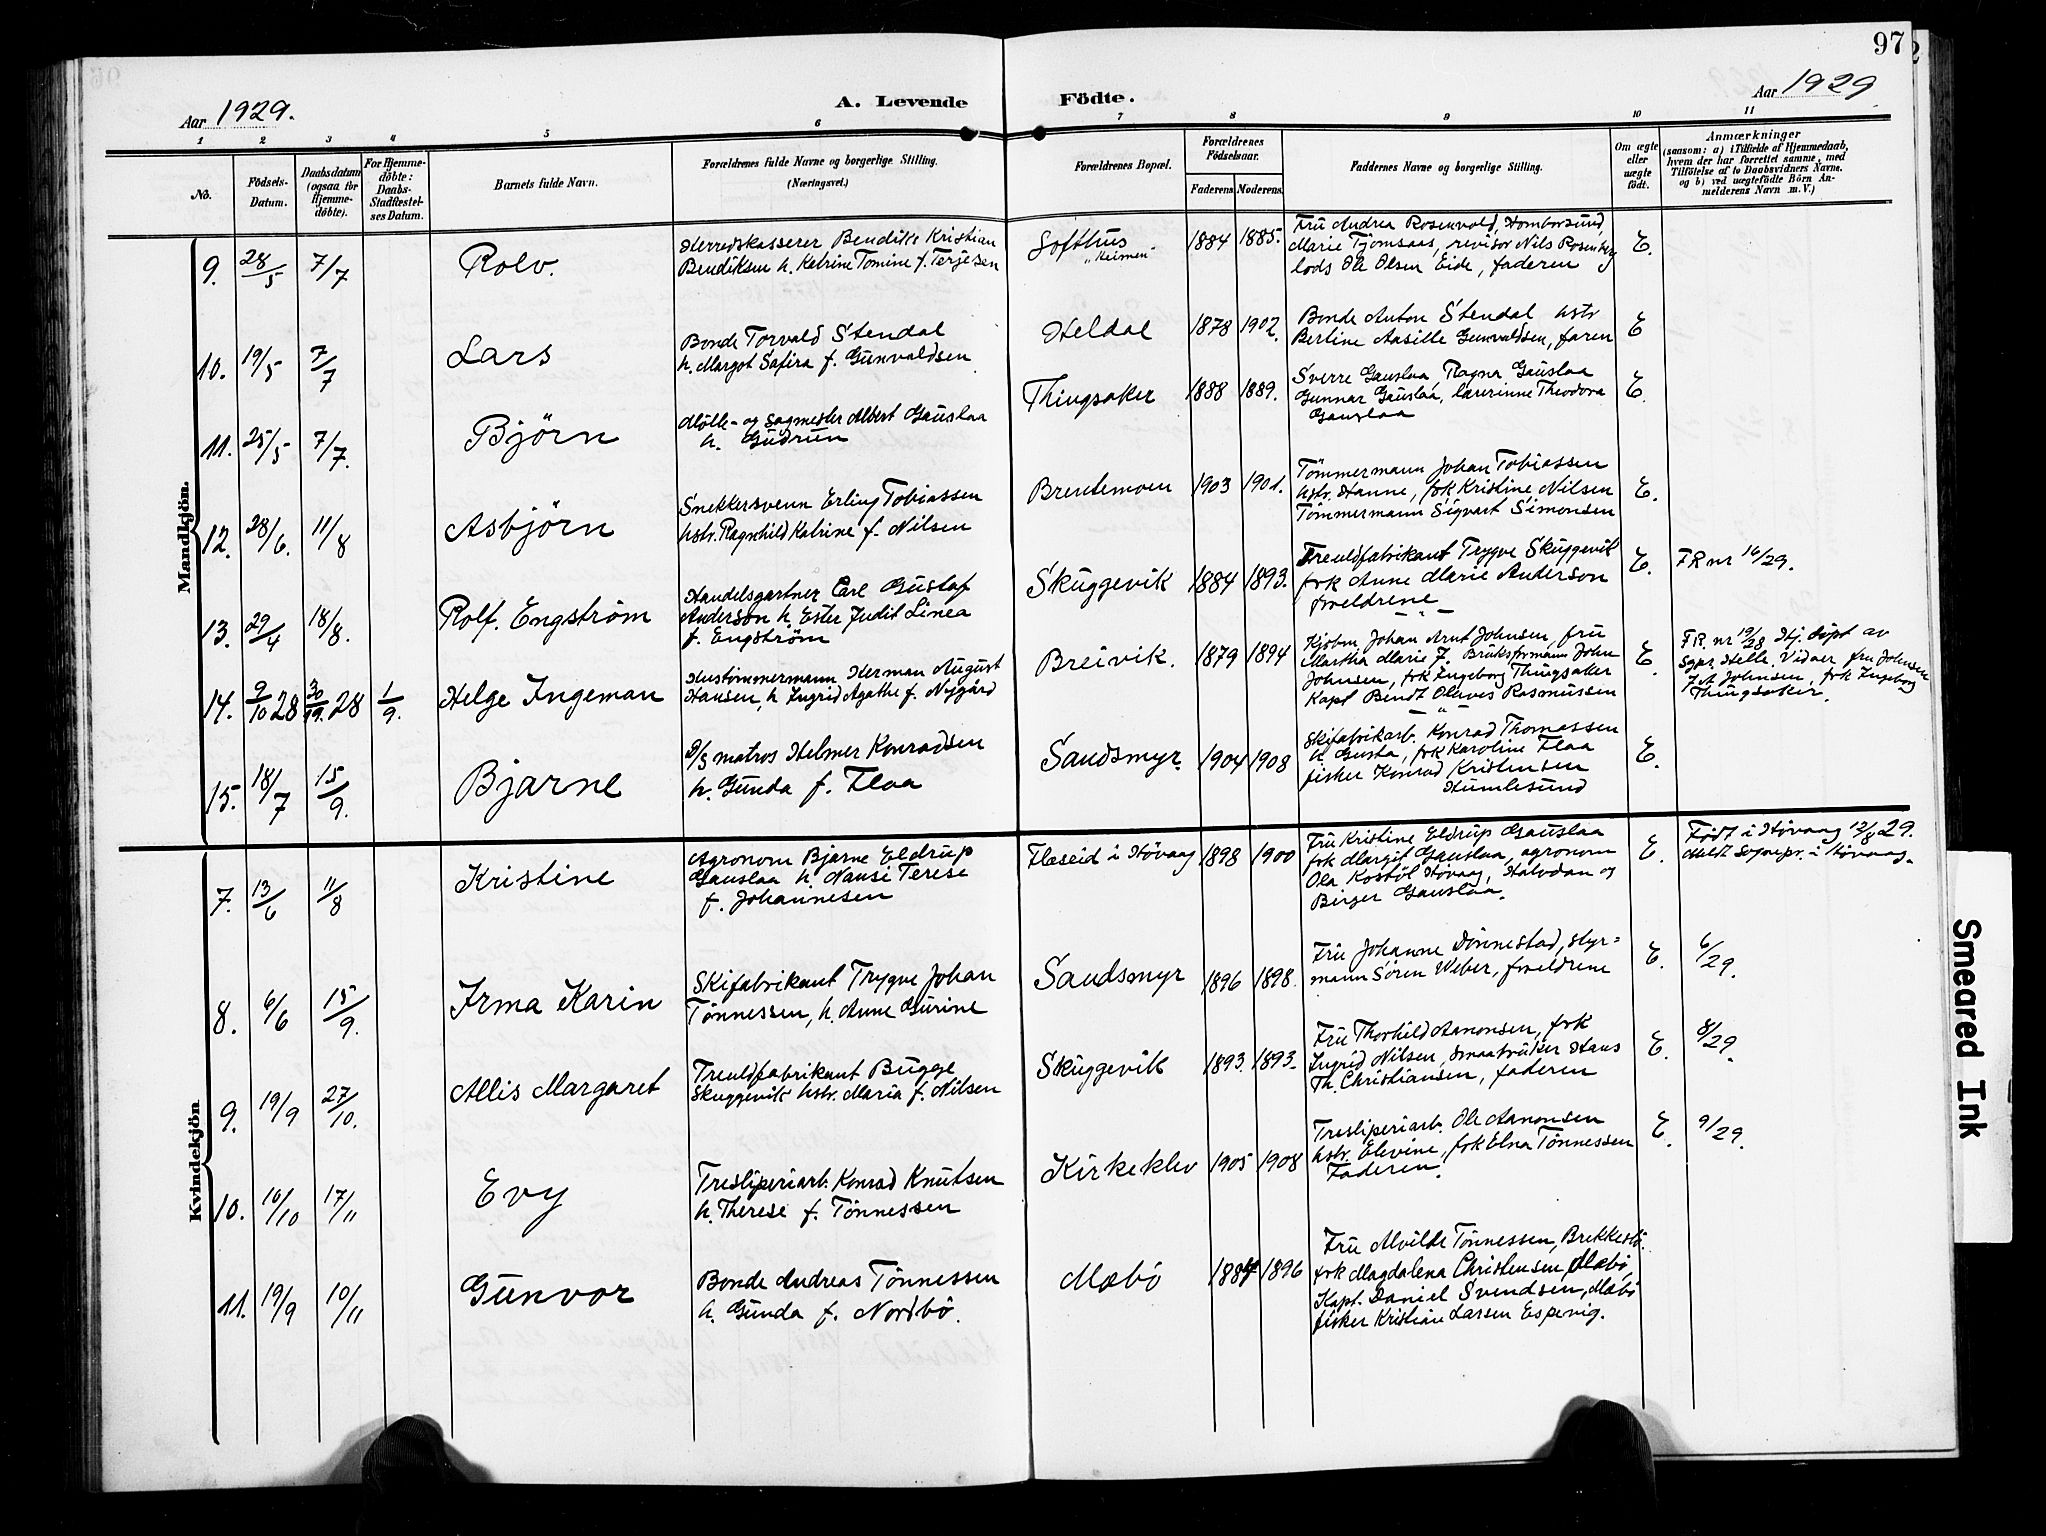 97
Aar 1929.
A. Levende
Födte.
Aar 1929
1 2 3 4 5 6 7 8 9 10 11
No.
Födsels-Datum.
Daabsdatum (ogsaa for Hjemme-döbte).
For Hjemme-döbte: Daabs-Stadfæstel-ses Datum.
Barnets fulde Navn.
Forældrenes fulde Navne og borgerlige Stilling. (Næringsvei.)
Forældrenes Bopæl.
Forældrenes Födselsaar.
Faderens. Moderens.
Faddernes Navne og borgerlige Stilling.
Om ægte eller uægte födt.
Anmærkninger
(saasom: a) i Tilfælde af Hjemmedaab,
hvem der har forrettet samme, med
Tilföielse af to Daabsvidners Navne,
og b) ved uægtefödte Börn An-
melderens Navn m. V.)
Mandkjön.
9. 28/5 7/7 Rolv.
Herredskasserer Bendiks Kristian
Bendiksen h. Katrine Tomine f. Terjesen
Softhus
"Heimen"
1884 1885.
Fru Andrea Rosenvold, Homborsund,
Marie Tjomsaas, revisor Nils Rosenberg
lods Ole Olsen Eide, faderen
E.
10. 19/5 7/7 Lars
Bonde Torvald Stendal
h. Margot Safira f. Gunvaldsen
Heldal
1878 1902.
Bonde Anton Stendal hstr
Berline Aasille Gunvaldsen, faren
E
11. 25/5 7/7. Björn
Mölle- og Sagmester Albert Gauslaa
h. Gudrun
Thingsaker
1888 1889.
Sverre Gauslaa Ragna Gauslaa
Gunnar Gauslaa, lærerinne Theodora
Gauslaa
E.
12. 28/6. 11/8 Asbjörn
Snekkersvenn Erling Tobiassen
hstr. Ragnhild Katrine f. Nilsen
Brentemoen
1903 1901.
Tömmermann Johan Tobiassen
hstr. Hanne, frk Kristine Nilsen
Tömmermann Sigvart Simonsen
E.
13. 29/4 18/8. Rolf. Engström
Handelsgartner Carl Gustaf
Anderson h. Ester Judit Linea
f. Engström
Skuggevik
1884 1893.
Treuldfabrikant Trygve Skuggevik
frk Anne Marie Anderson
foreldrene
E.
FR nr 16/29.
14. 9/10 28 30/19. 28 1/9. Helge Ingeman
Hustömmermann Herman August
Hansen, h. Ingrid Agathe f. Nygård
Breivik.
1879 1894
Kjöbm. Johan Arnt Johnsen, fru
Martha Marie J. Bruksformann John
Johnsen, frk Ingeborg Thingsaker
Kapt Bendt Olaves Rasmussen
E.
FR. nr 19/28 Hj. döpt av
Spr. Helle. Vidner fru Johnsen
J.A Johnsen, frk Ingeborg
Thingsaker.
15. 18/7 15/9. Bjarne
D/S matros Helmer Konradsen
h. Gunda f. Flaa
Sandsmyr.
1904 1908
Skifabrikarb. Konrad Thomassen
h Gusta, frk Karoline Flaa
fisker Konrad Kristensen
Humlesund
E.
Kvindekjön
7. 13/6 11/8 Kristine
Agronom Bjarne Eldrup
Gauslaa h. Nansi Terese
f. Johannesen
Flaseid i Hövaag
1898 1900
Fru Kristine Eldrup Gauslaa
frk Margit Gauslaa, agronom
Ola Kostöl Hövaag, Halvdan og
Birger Gauslaa.
E.
Født i Hövaag 12/8 29.
Meldt Sognepr. i Hövaag.
8. 6/6 15/9. Irma Karin
Skifabrikant Trygve Johan
Tönnessen, h. Anne Gurine
Sandsmyr
1896 1898.
Fru Johanne Dönnestad, styr=
mann Sören Weber, foreldrene
E.
6/29.
9. 19/9 27/10. Allis Margaret
Treuldfabrikant Bugge
Skuggevik hstr. Maria f. Nilsen
Skuggevik
1893. 1893.
Fru Thorhild Aanonsen, frk
Ingrid Nilsen, smaabruker Hans
Th. Christiansen, faderen
E.
8/29.
10. 10/10 17/11 Evy
Tresliperiarb. Konrad Knutsen
h. Therese f. Tönnessen
Kirkeklev
1905 1908
Tresliperiarb. Ole Aanonsen
hstr. Elevine, frk Elna Tönnessen
Faderen.
E.
9/29.
11. 19/9 10/11 Gunvor
Bonde Andreas Tönnessen
h. Gunda f. Nordbö.
Mæbö
1884 1896
Fru Alvilde Tönnessen, Brekkestö.
frk Magdalena Christensen, Mæbö,
Kapt. Daniel Svendsen, Mæbö
fisker Kristian Larsen Espevig.
Smeared Ink